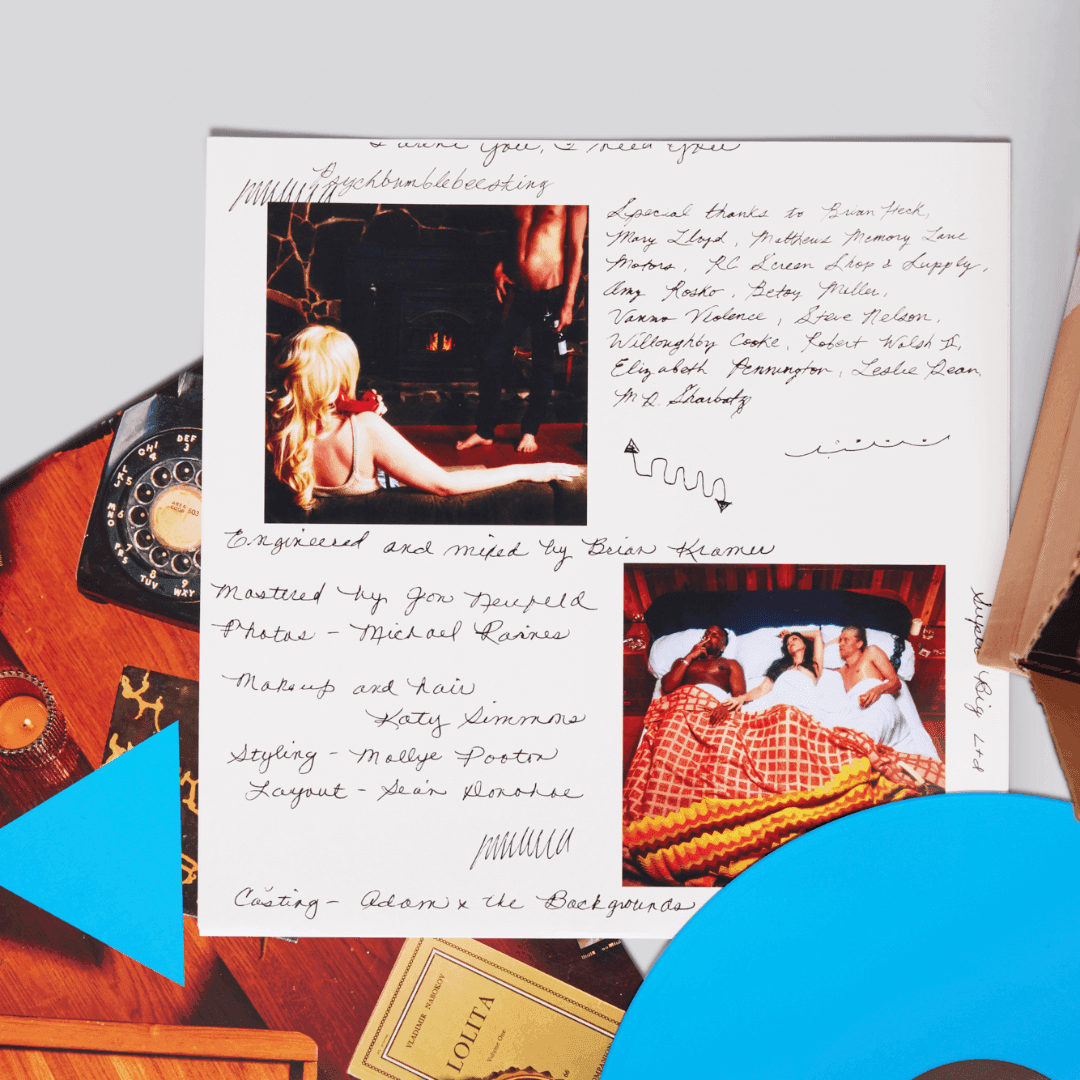 I want You, I need You
Psychbumblebeesting
Special thanks to Brian Heck,
Mary Lloyd, Matthews Memory Lane
Motors, RC Screen Shop & Supply,
Amy Rosko, Betsy Miller,
Vanna Violence, Steve Nelson,
Willoughby Cooke, Robert Walsh II,
Elizabeth Pennington, Leslie Dean,
M.D. Sharbatz
Engineered and mixed by Brian Kramer
Mastered by Jon Neufeld
Photos - Michael Raines
Makeup and hair
Katy Simmons
Styling - Mollye Pooton
Layout - Seán Donohoe
Casting - Adam x the Backgrounds
Super Big Ltd
GHI
4
DEF
3
JKL
5
MNO
6
PRS
7
TUV
8
WXY
9
AREA
CODE 503
VLADIMIR NABOKOV
LOLITA
Volume One
66